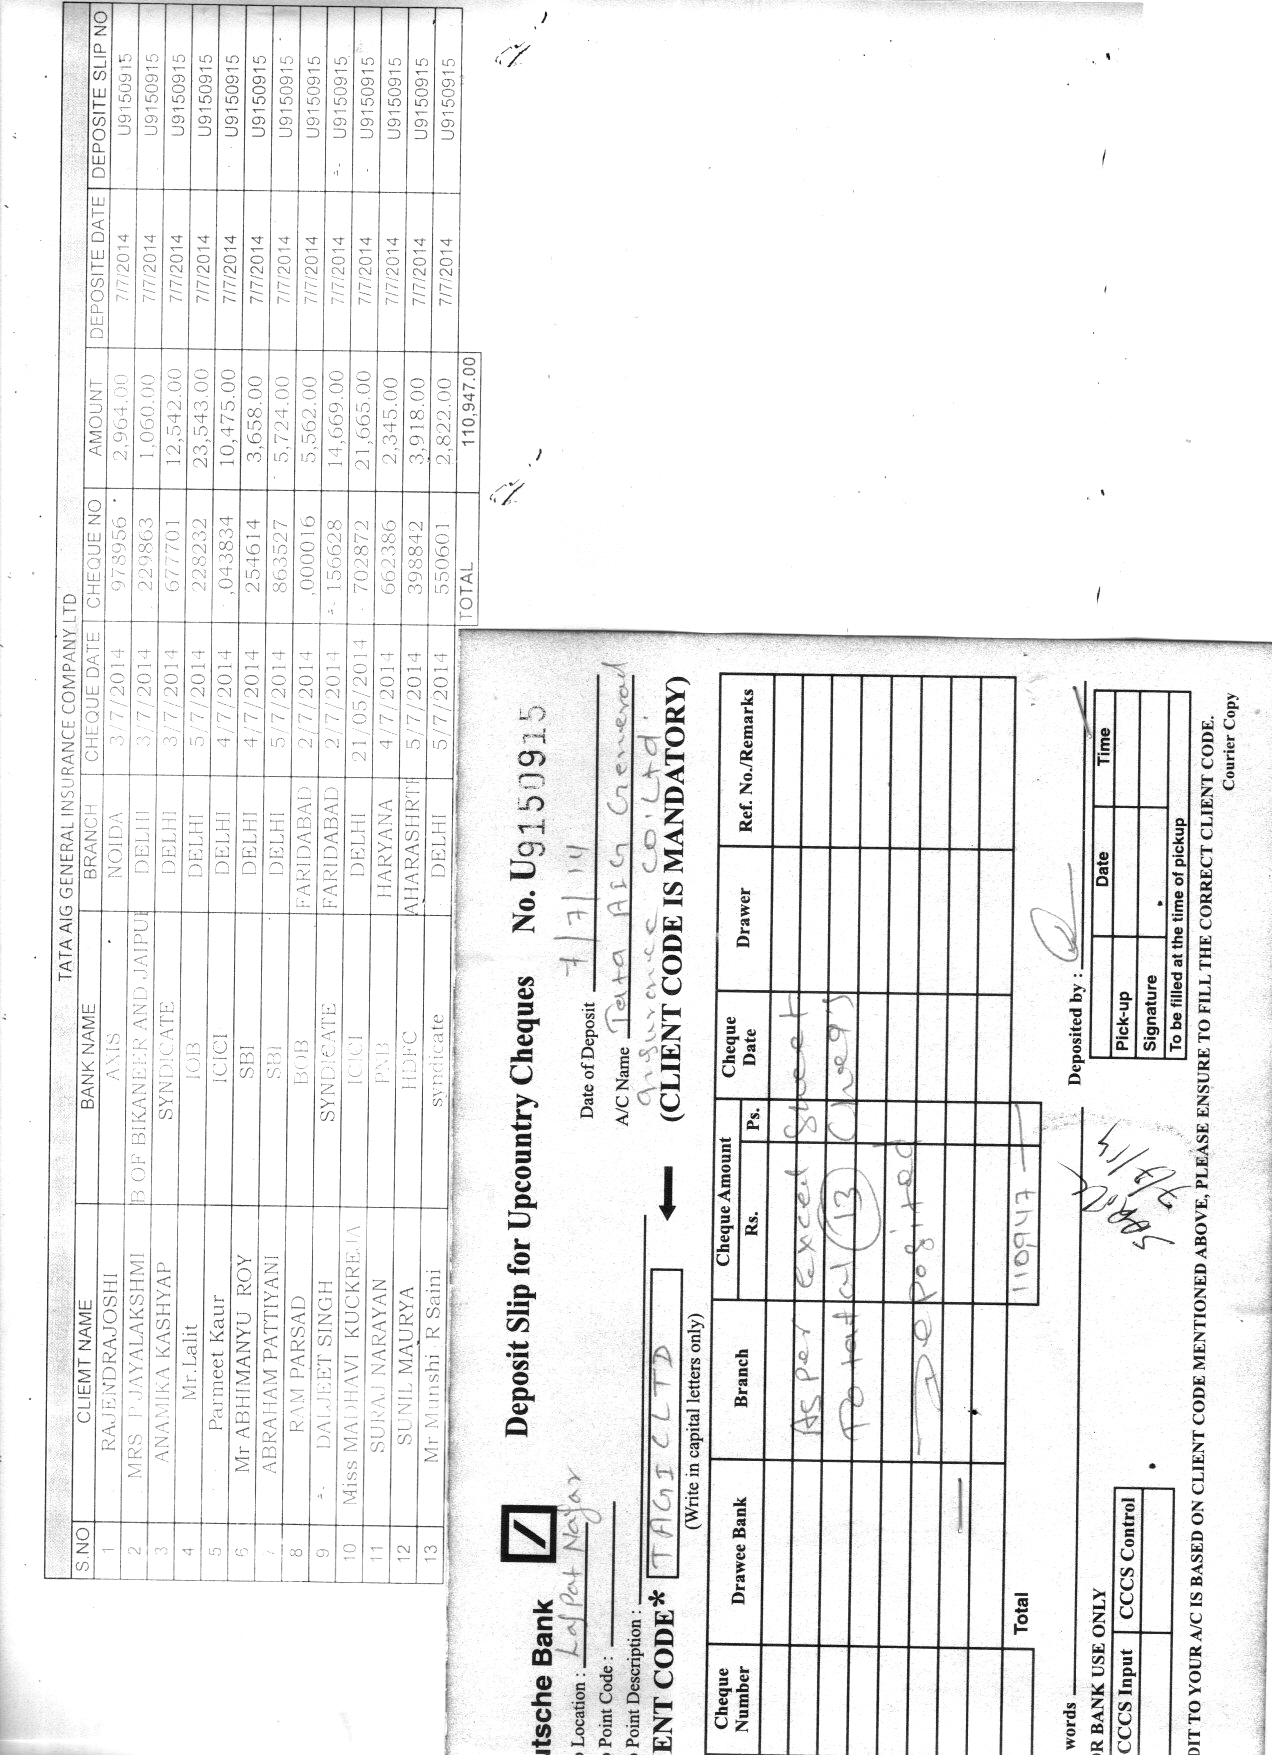 TATA AIG GENERAL INSURANCE COMPANY LTD
S.NO CLIEMT NAME BANK NAME BRANCH CHEQUE DATE CHEQUE NO AMOUNT DEPOSITE DATE DEPOSITE SLIP NO
1 RAJENDRAJOSHI AXIS NOIDA 3/7/2014 978956 2,964.00 7/7/2014 U9150915
2 MRS P JAYALAKSHMI B OF BIKANEER AND JAIPUR DELHI 3/7/2014 229863 1,060.00 7/7/2014 U9150915
3 ANAMIKA KASHYAP SYNDICATE DELHI 3/7/2014 677701 12,542.00 7/7/2014 U9150915
4 Mr.Lalit IOB DELHI 5/7/2014 228232 23,543.00 7/7/2014 U9150915
5 Parmeet Kaur ICICI DELHI 4/7/2014 ,043834 10,475.00 7/7/2014 U9150915
6 Mr ABHIMANYU ROY SBI DELHI 4/7/2014 254614 3,658.00 7/7/2014 U9150915
7 ABRAHAM PATTIYANI SBI DELHI 5/7/2014 863527 5,724.00 7/7/2014 U9150915
8 RAM PARSAD BOB FARIDABAD 2/7/2014 ,000016 5,562.00 7/7/2014 U9150915
9 DALJEET SINGH SYNDICATE FARIDABAD 2/7/2014 156628 14,669.00 7/7/2014 U9150915
10 Miss MADHAVI KUCKREJA ICICI DELHI 21/05/2014 702872 21,665.00 7/7/2014 U9150915
11 SURAJ NARAYAN PNB HARYANA 4/7/2014 662386 2,345.00 7/7/2014 U9150915
12 SUNIL MAURYA HDFC AHARASHRTE 5/7/2014 398842 3,918.00 7/7/2014 U9150915
13 Mr Munshi R Saini syndicate DELHI 5/7/2014 550601 2,822.00 7/7/2014 U9150915
TOTAL 110,947.00
utsche Bank Deposit Slip for Upcountry Cheques No. U9150915
Location : Lajpat Nagar Date of Deposit 7/7/14
Point Code : A/C Name Tata AIG General
Point Description : Insurance Co. Ltd.
ENT CODE* TAGICLTD (CLIENT CODE IS MANDATORY)
(Write in capital letters only)
Cheque Number Drawee Bank Branch Cheque Amount Cheque Date Drawer Ref. No./Remarks
Rs. Ps.
As per excel sheet
Total (13) Cheqs
Deposited
Total 110947
words Deposited by :
R BANK USE ONLY
CCCS Input CCCS Control
7/7/14
Pick-up Date Time
Signature
To be filled at the time of pickup
DIT TO YOUR A/C IS BASED ON CLIENT CODE MENTIONED ABOVE, PLEASE ENSURE TO FILL THE CORRECT CLIENT CODE.
Courier Copy